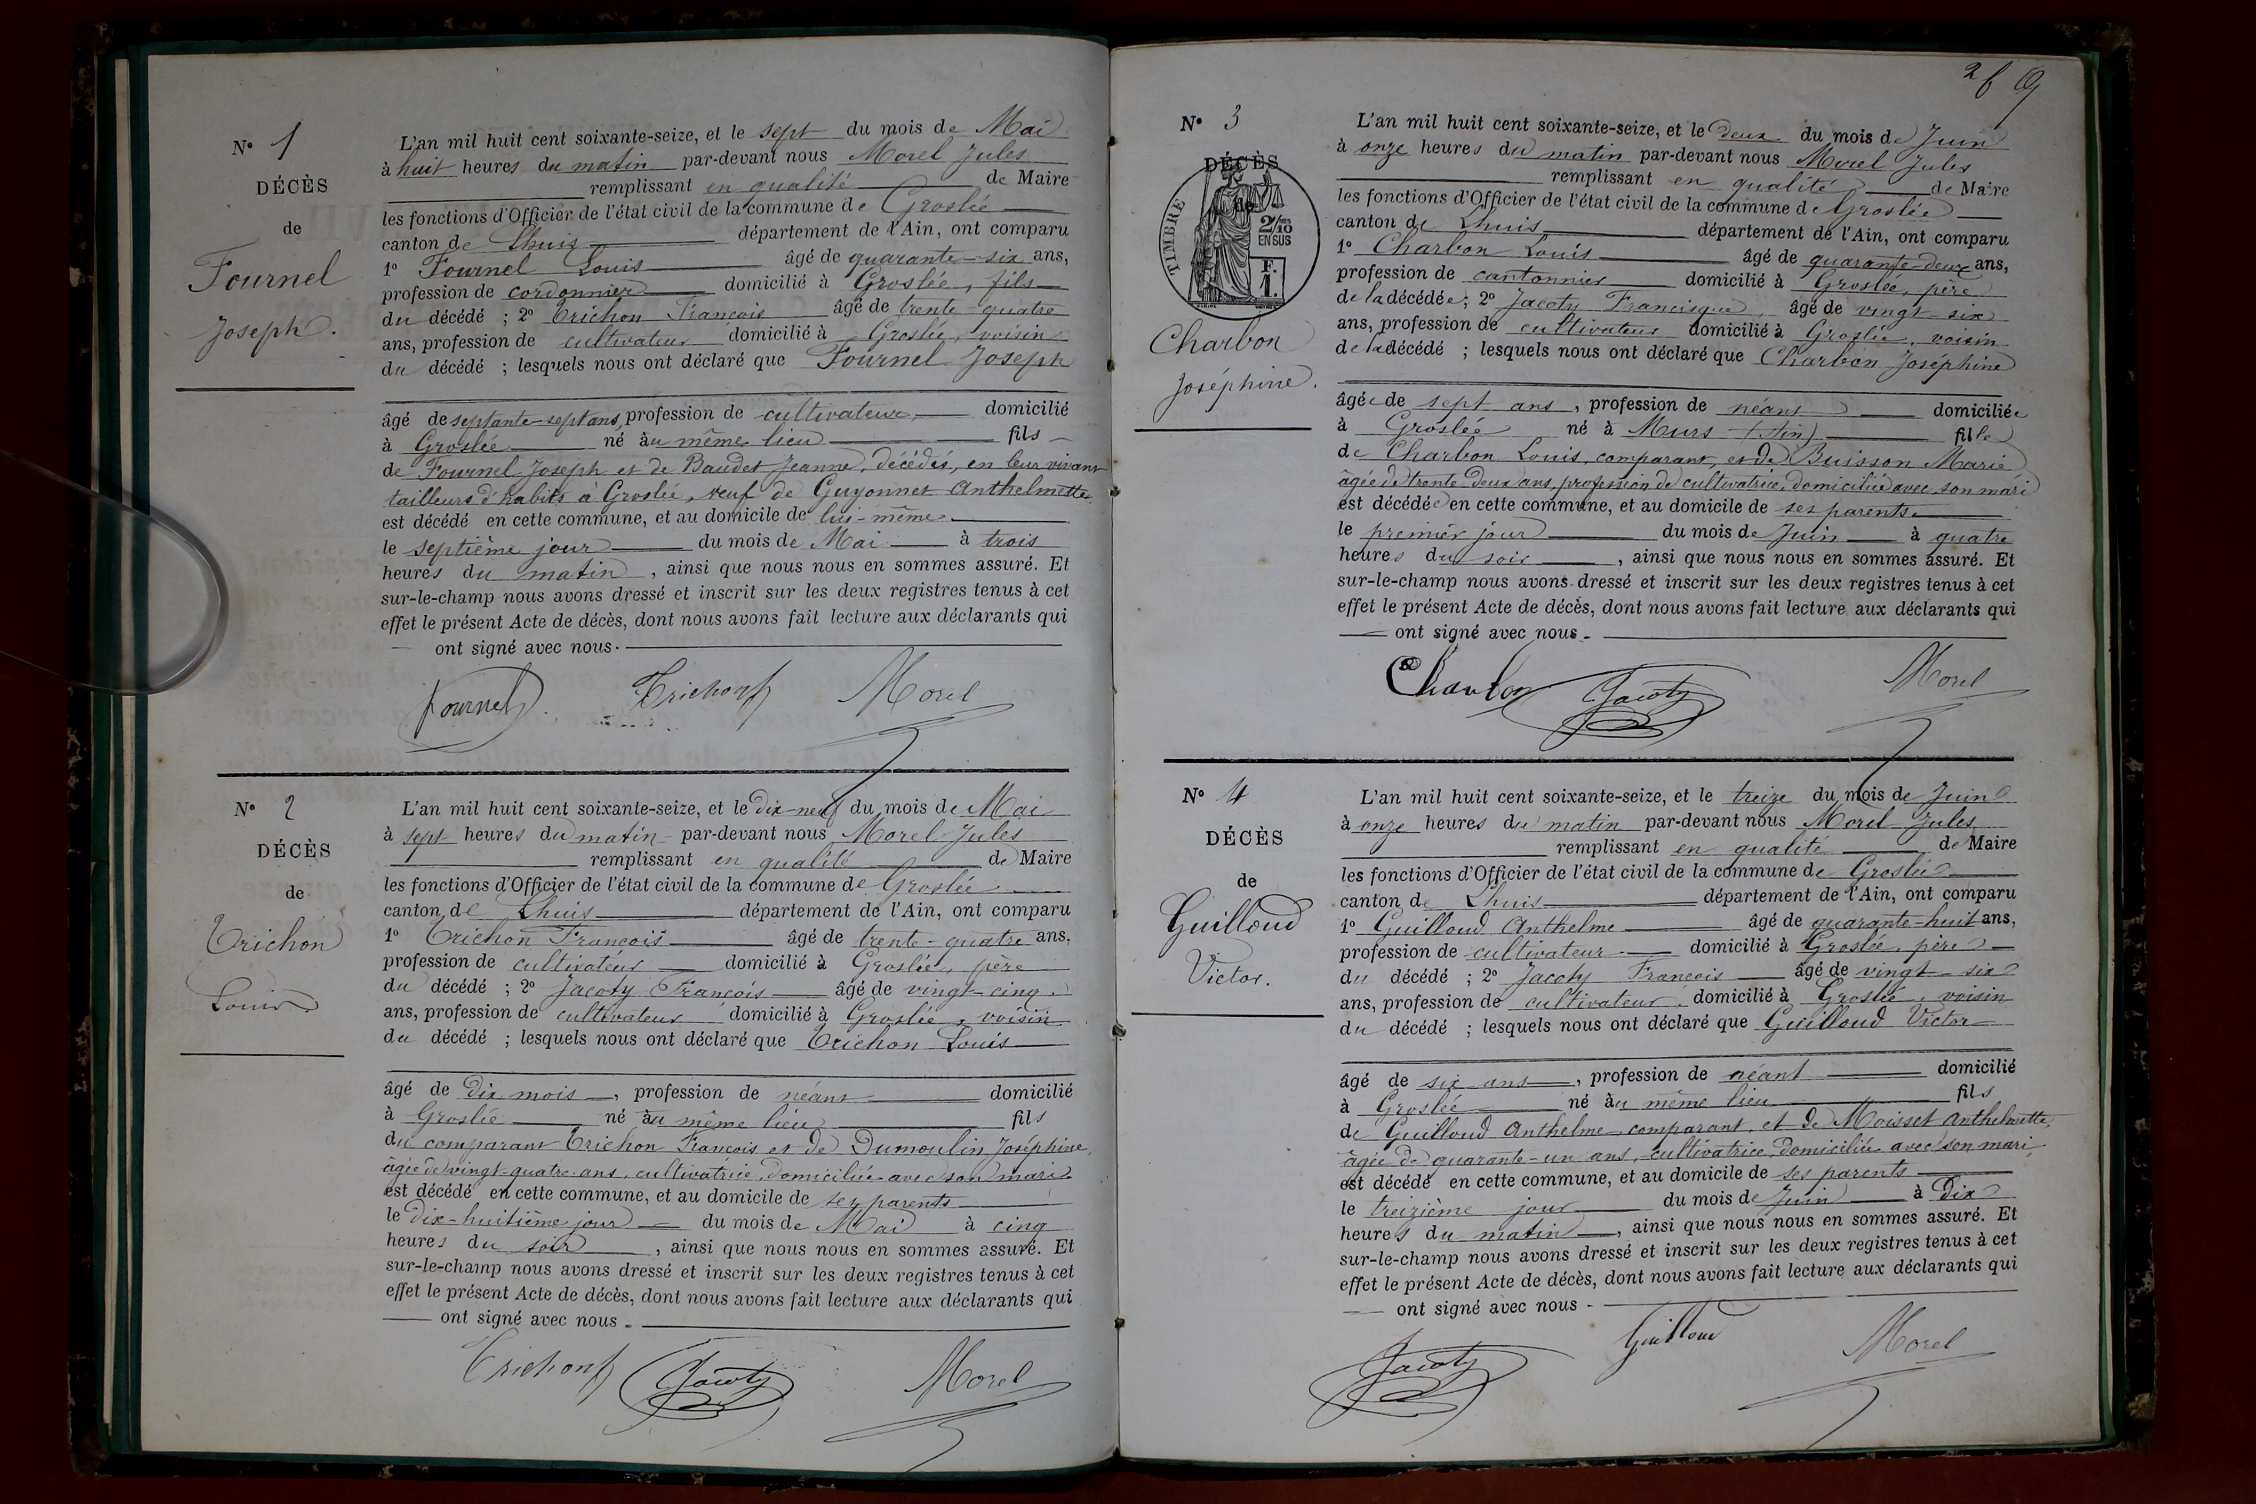 Nº 1
DÉCÈS
de
Fournel
Joseph.
L'an mil huit cent soixante-seize, et le sept du mois de Mai
à huit heures du matin par-devant nous Morel Jules
remplissant en qualité de Maire
les fonctions d'Officier de l'état civil de la commune de Groslée
canton de Lhuis département de l'Ain, ont comparu
1º Fournel Louis âgé de quarante-six ans,
profession de cordonnier domicilié à Groslée, fils
du décédé ; 2º Trichon François âgé de trente-quatre
ans, profession de cultivateur domicilié à Groslée, voisin
du décédé ; lesquels nous ont déclaré que Fournel Joseph
âgé de septante-sept ans, profession de cultivateur, domicilié
à Groslée né au même lieu fils
de Fournel Joseph et de Baudet Jeanne, décédés, en leur vivant
tailleurs d'habits à Groslée, veuf de Guyonnet Anthelmette
est décédé en cette commune, et au domicile de lui-même
le septième jour du mois de Mai à trois
heures du matin, ainsi que nous nous en sommes assuré. Et
sur-le-champ nous avons dressé et inscrit sur les deux registres tenus à cet
effet le présent Acte de décès, dont nous avons fait lecture aux déclarants qui
ont signé avec nous.
Fournel Trichon Morel
Nº 2
DÉCÈS
de
Trichon
Louis
L'an mil huit cent soixante-seize, et le Dix-neuf du mois de Mai
à sept heures du matin par-devant nous Morel Jules
remplissant en qualité de Maire
les fonctions d'Officier de l'état civil de la commune de Groslée
canton de Lhuis département de l'Ain, ont comparu
1º Trichon François âgé de trente-quatre ans,
profession de cultivateur domicilié à Groslée, père
du décédé ; 2º Jacoty François âgé de vingt-cinq
ans, profession de cultivateur domicilié à Groslée, voisin
du décédé ; lesquels nous ont déclaré que Trichon Louis
âgé de Dix mois, profession de néant domicilié
à Groslée né au même lieu fils
du comparant Trichon François et de Dumoulin Joséphine,
âgée de vingt-quatre ans, cultivatrice, domiciliée avec son mari
est décédé en cette commune, et au domicile de ses parents
le Dix-huitième jour du mois de Mai à cinq
heures du soir, ainsi que nous nous en sommes assuré. Et
sur-le-champ nous avons dressé et inscrit sur les deux registres tenus à cet
effet le présent Acte de décès, dont nous avons fait lecture aux déclarants qui
ont signé avec nous.
Trichon Jacoty Morel
2
Nº 3
DÉCÈS
de
TIMBRE
2/10 EN SUS
F. 1.
Charbon
Joséphine.
L'an mil huit cent soixante-seize, et le deux du mois de Juin
à onze heures du matin par-devant nous Morel Jules
remplissant en qualité de Maire
les fonctions d'Officier de l'état civil de la commune de Groslée
canton de Lhuis département de l'Ain, ont comparu
1º Charbon Louis âgé de quarante-deux ans,
profession de cantonnier domicilié à Groslée, père
de la décédée ; 2º Jacoty Francisque, âgé de vingt-six
ans, profession de cultivateur domicilié à Groslée, voisin
de la décédé ; lesquels nous ont déclaré que Charbon Joséphine
âgée de sept ans, profession de néant domiciliée
à Groslée né à Murs (Ain) fille
de Charbon Louis, comparant, et de Buisson Marie
âgée de trente-deux ans, profession de cultivatrice, domiciliée avec son mari
est décédée en cette commune, et au domicile de ses parents
le premier jour du mois de Juin à quatre
heures du soir, ainsi que nous nous en sommes assuré. Et
sur-le-champ nous avons dressé et inscrit sur les deux registres tenus à cet
effet le présent Acte de décès, dont nous avons fait lecture aux déclarants qui
ont signé avec nous.
Charbon Jacoty Morel
Nº 4
DÉCÈS
de
Guilloud
Victor.
L'an mil huit cent soixante-seize, et le treize du mois de Juin
à onze heures du matin par-devant nous Morel Jules
remplissant en qualité de Maire
les fonctions d'Officier de l'état civil de la commune de Groslée
canton de Lhuis département de l'Ain, ont comparu
1º Guilloud Anthelme âgé de quarante-huit ans,
profession de cultivateur domicilié à Groslée, père
du décédé ; 2º Jacoty François âgé de vingt-six
ans, profession de cultivateur domicilié à Groslée, voisin
du décédé ; lesquels nous ont déclaré que Guilloud Victor
âgé de six ans, profession de néant domicilié
à Groslée né au même lieu fils
de Guilloud Anthelme, comparant, et de Moisset Anthelmette,
âgée de quarante-un ans, cultivatrice, domiciliée avec son mari
est décédé en cette commune, et au domicile de ses parents
le treizième jour du mois de Juin à Dix
heures du matin, ainsi que nous nous en sommes assuré. Et
sur-le-champ nous avons dressé et inscrit sur les deux registres tenus à cet
effet le présent Acte de décès, dont nous avons fait lecture aux déclarants qui
ont signé avec nous.
Jacoty Guilloud Morel